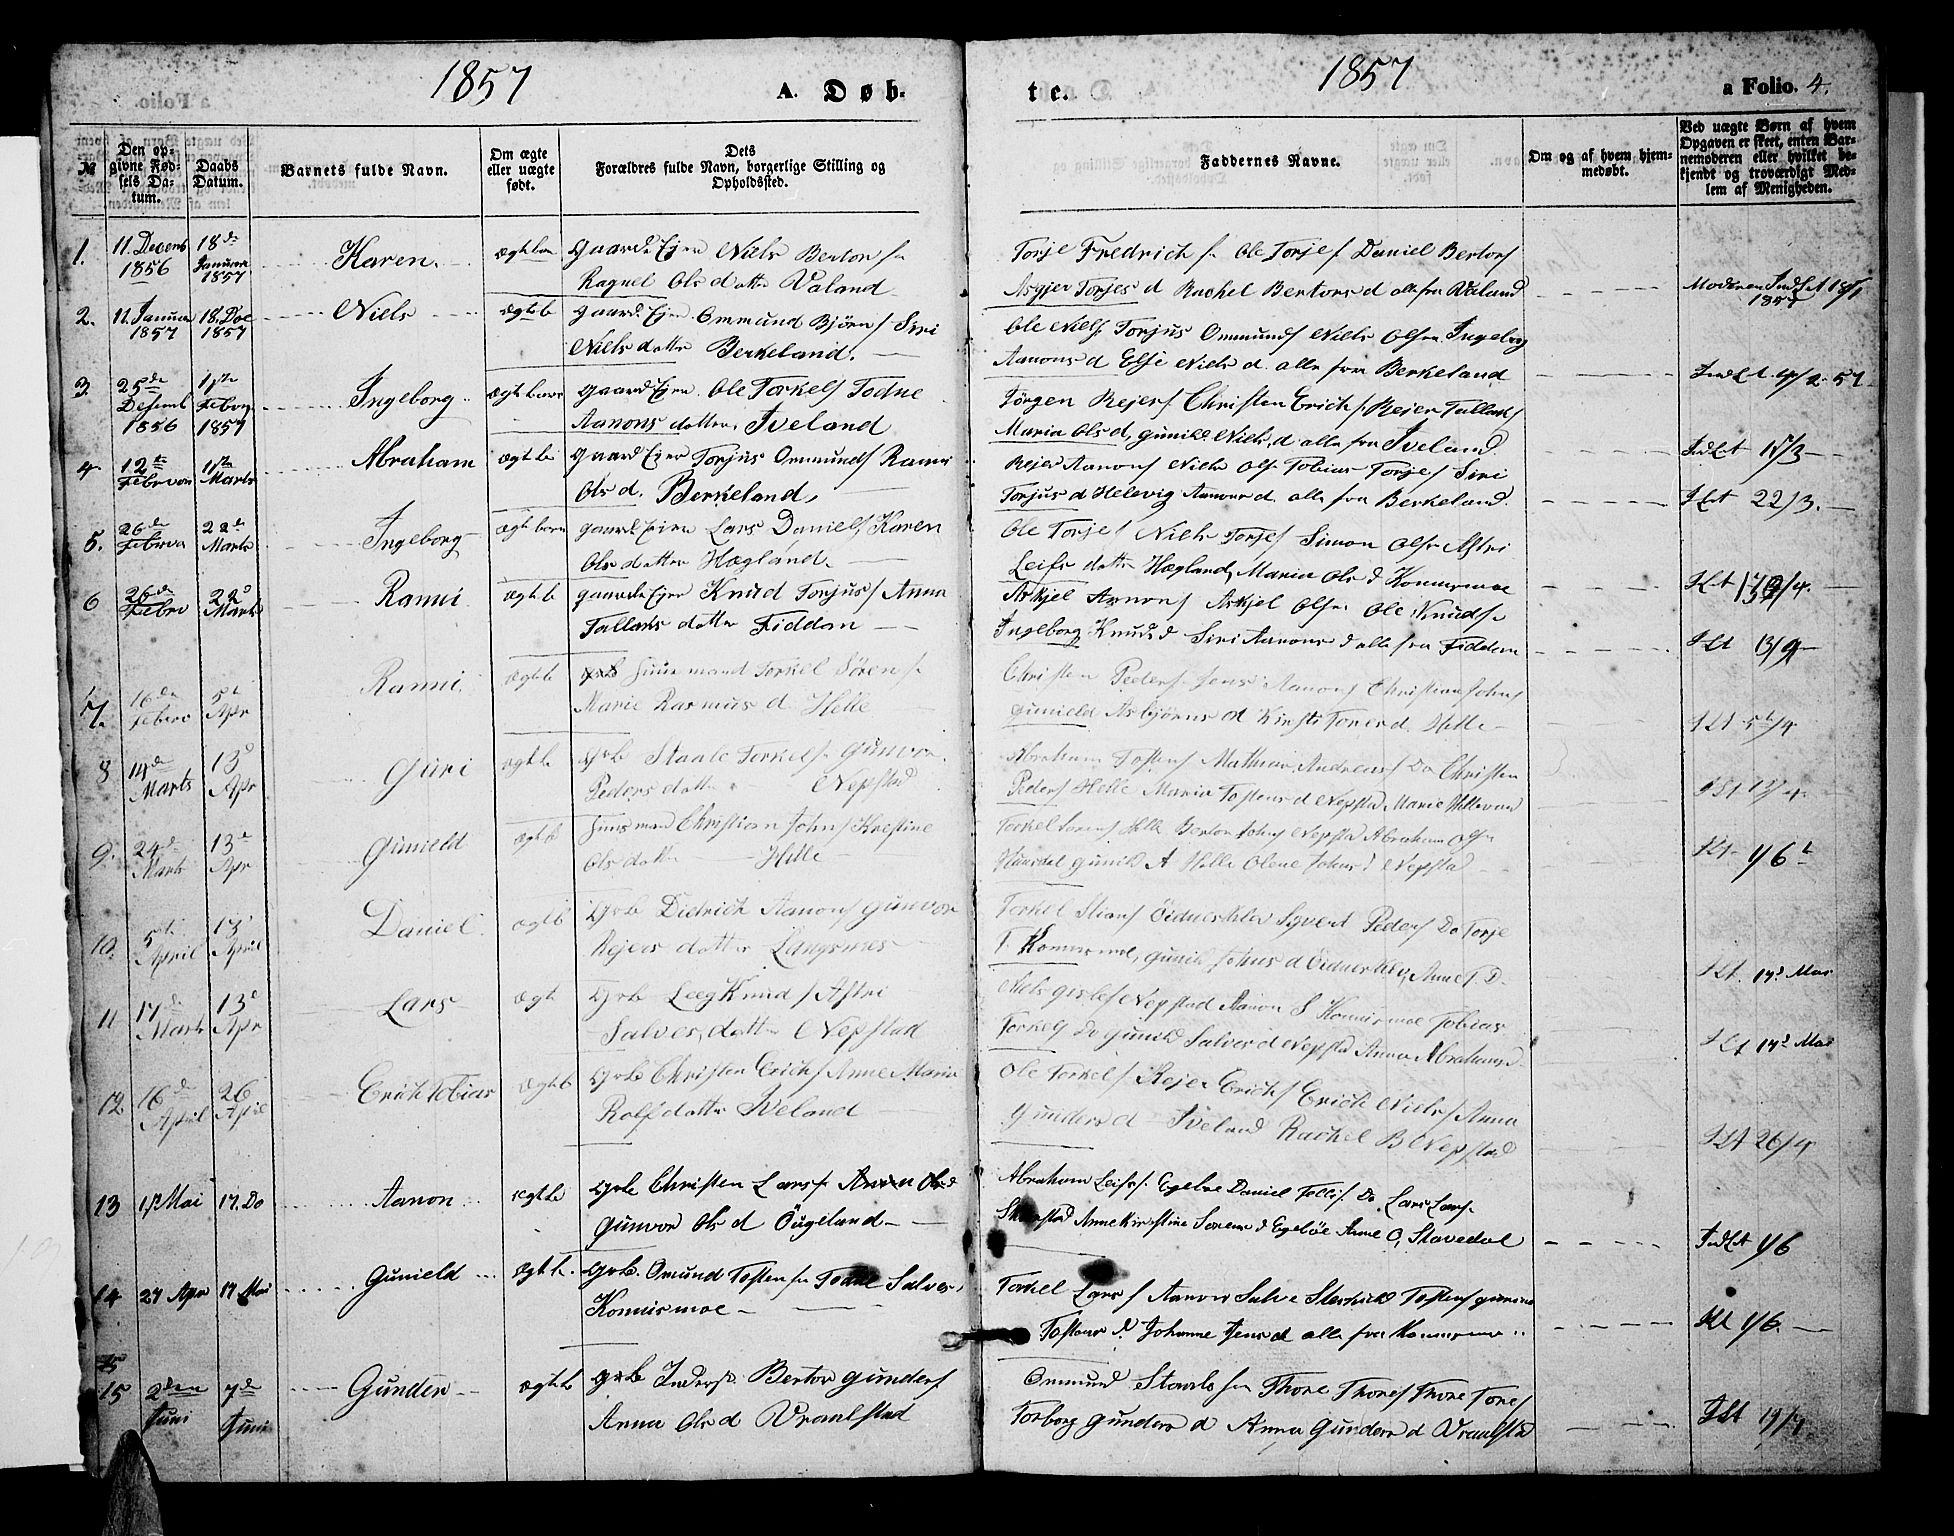 1857 A. Døb-
te. 1857 a Folio. 4.
№
Den op-
givne Fød-
sels Da-
tum.
Daabs
Datum.
Barnets fulde Navn.
Om ægte
eller uægte
født.
Dets
Forældres fulde Navn, borgerlige Stilling og
Opholdssted.
Faddernes Navne.
Om og af hvem hjem-
medøbt.
Ved uægte Børn af hvem
Opgaven er skeet, enten Bar-
nemoderen eller hvilket be-
kjendt og troværdigt Med-
lem af Menigheden.
1. 11. Decemb 1856 18de Januar 1857 Karen. ægtbarn Gaard Ejer Niels Bertors
Raquel Ols datter Valand
Torje Fredrichs Ole Torjes Daniel Bertors
Asgjer Torjes d Rachel Bertors d alle fra Valand
Moderen Indlt 18/1 1857
2. 11. Januar 1857 18. Do 1857 Niels ægteb Gaard Ejer Ommund Bjørns Siri
Niels datter Berkeland.
Ole Niels Torjus Ommunds Niels Olsen Ingeborg
Aanons d Elsi Niels d. alle fra Berkeland
3. 25de Desemb 1856 1ste Febr 1857 Ingeborg ægtebarn Gaard Ejer Ole Torkels Todne
Aanons datter Iveland
Jörgen Rejers Christen Erichs Rejer Tallaks
Maria Ols d, Gunild Niels d alle fra Iveland
4 12te Februar 1ste Marts Abraham ægteb Gaard Ejer Torjus Ommunds Ranni
Ols d. Berkeland,
Rejer Aanons Niels Ols Tobias Torjes Siri
Torjus d Helevig Aanons d. alle fra Berkeland.
Ilt 22/3.
5. 26de Februar 22de Marts Ingeborg ægtebarn Gaard Ejer Lars Daniels Karen
Ols datter Hægland
Ole Torjes Niels Torjes Simon Olsen Astri
Leifs datter Hægland, Maria Ols d Konnismoe
6 26de Febr 22d Marts Ranni ægteb gaards Ejer Knud Torjus Anna
Tallaks datter Fiddan
Askjel Aanons Askjel Olsen Ole Knuds
Ingeborg Knuds d Siri Aanons d alle fra Fiddan
7. 16de Febr 5t Apr Ranni ægteb Huusmand Torkel Sörens
Marie Rasmus d Helle
Christen Peders Jens Aanons Christian Johns
Gunield Asbjørns d Kirsti Tores d. Helle
8 14de Marts 13d Apr Guri ægteb Grb Staale Torkels Gunvor
Peders datter Nepstad
Abraham Tostens Mathias Andreas Do Christen
Peders Helle Maria Tostens d Nepstad Marie
9. 24de Marts 13d Apr Gunield ægteb Huusmand Christian Johns Kristine
Ols datter Helle
Torkel Sörens Helle Bertor Johns Nepstad Abraham Ols
Gunild A Helle Olene Johns d Nepstad
10. 5te April 13d April Daniel. ægteb Grb Diedrich Aanons Gunvor
Rejers datter Langemoe
Torkel Stians Sÿvert Peders Do Torje
T. Konnismoe, Gunild Johns d Anne T. D.
Ilt. 17d Mai
11 17de Marts 13d Apr Lars ægte Grb Leeg Knuds Astri
Salves datter Nepstad
Niels Nepstad Aanon S Konnismoe Tobias
Torkels Do Gunild Salves d Nepstad Anna Abrahamsd.
Ilt 17d Mai
12 16de April 26 April Erich Tobias ægteb Grb Christen Erichs Anne Maria
Rolfs datter Iveland
Ole Torkels Rejer Erichs Erich Niels Anna
Gunders d Iveland Rachel B Nepstad
Ilt 26/4
13 1/2 Mai 17. Do Aanon ægteb Grb Christen Lars Anna Olsd
Gunvor Ols d Öugeland
Abraham Leifs. Egeløe Daniel Do Lars Lars
Anne Kirstine Sørens d Egeløe Anne O, Stavedal
14 27 Apr 17 Mai Gunield ægteb. Grb. Omund Tostens Todne Salves,
Konnismoe
Torkel Lars Aanon Salve Tostens
Tostens d. Johanne Jens d alle fra Konnismoe
15 2den Juni 7de Juni Gunden ægteb Grb Inders. Bertor Gunders
Anna Ols d Vraalstad
Ommund Staals Thore Thores Thore Tores
Torborg Gunders d Anna Gunders d Vraalstad
Ilt